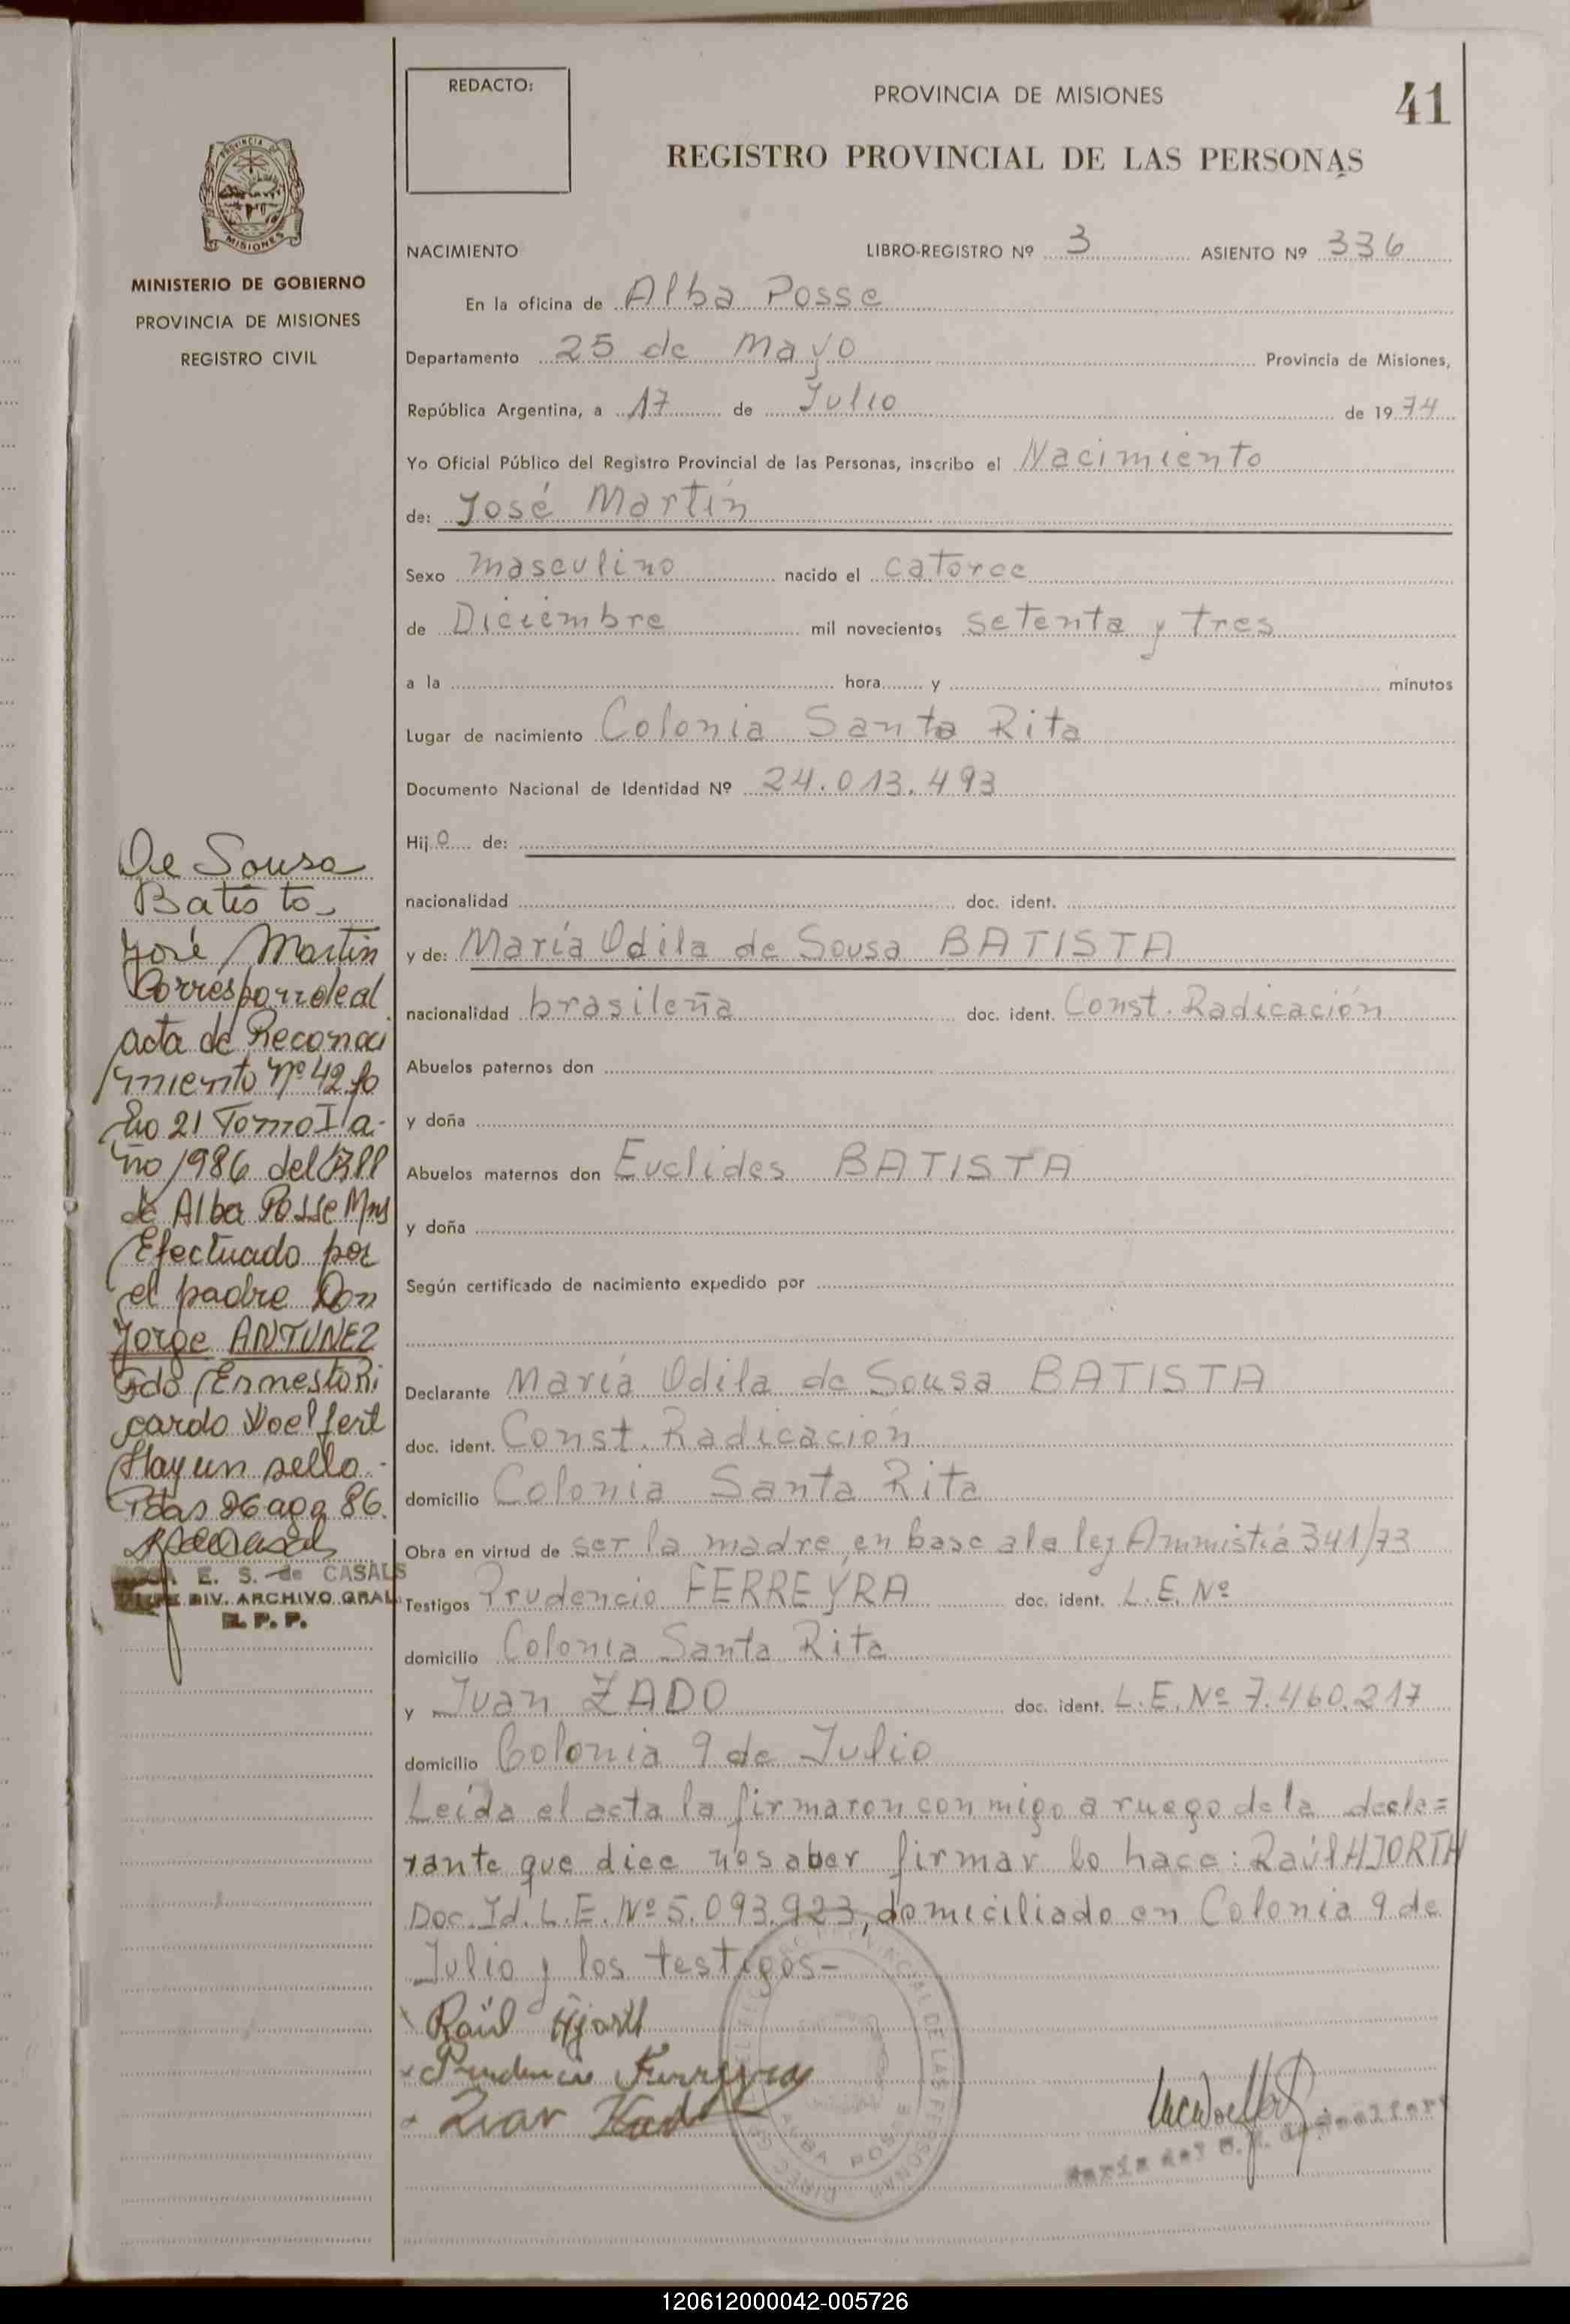 REDACTO:
PROVINCIA DE MISIONES
41
REGISTRO PROVINCIAL DE LAS PERSONAS
PROVINCIA DE
MISIONES
MINISTERIO DE GOBIERNO
PROVINCIA DE MISIONES
REGISTRO CIVIL
NACIMIENTO LIBRO-REGISTRO Nº 3 ASIENTO Nº 336
En la oficina de Alba Posse
Departamento 25 de Mayo Provincia de Misiones,
República Argentina, a 17 de Julio de 1974
Yo Oficial Público del Registro Provincial de las Personas, inscribo el Nacimiento
de: José Martín
Sexo masculino nacido el catorce
de Diciembre mil novecientos setenta y tres
a la hora y minutos
Lugar de nacimiento Colonia Santa Rita
Documento Nacional de Identidad Nº 24.013.493
Hijo de:
nacionalidad doc. ident.
y de: María Odila de Sousa BATISTA
nacionalidad brasileña doc. ident. Const. Radicación
Abuelos paternos don
y doña
Abuelos maternos don Euclides BATISTA
y doña
Según certificado de nacimiento expedido por
Declarante María Odila de Sousa BATISTA
doc. ident. Const. Radicación
domicilio Colonia Santa Rita
Obra en virtud de ser la madre, en base a la ley Ammistía 341/73
Testigos Prudencio FERREYRA doc. ident. L.E. Nº
domicilio Colonia Santa Rita
y Juan ZADO doc. ident. L.E. Nº 7.460.217
domicilio Colonia 9 de Julio
Leída el acta la firmaron conmigo a ruego de la decla=
rante que dice no saber firmar lo hace: Raúl HJORTH
Doc. Id. L.E. Nº 5.093.923, domiciliado en Colonia 9 de
Julio y los testigos-
Raúl Hjorth
Prudencio Ferreyra
De Sousa
Batista
José Martin
Corresponde al
acta de Reconoci
miento Nº 42 fo
lio 21 Tomo I a-
ño 1986 del RPP
de Alba Posse Mns
Efectuado por
el padre Don
Jorge ANTUNEZ
Fdo Ernesto Ri
cardo Woelfert
Hay un sello.
Pdas 26 ago 86.
E. S. de CASALS
DIV. ARCHIVO GRAL
R. P. P.
PROVINCIAL DE LAS PERSONAS
ALBA POSSE
120612000042-005726